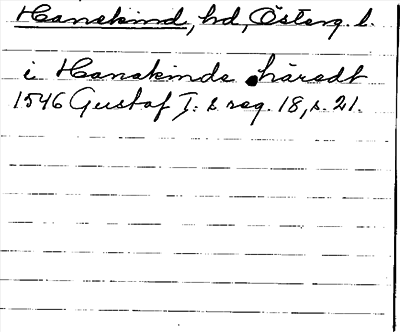 Hanekind, hd, Österg. l.
i Hanekinds häredt
1546 Gustaf I:s reg. 18, s. 21.